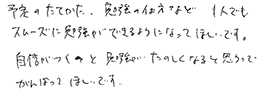 予定のたてかた、勉強の仕方など 1人でも
スムーズに勉強ができるようになってほしいです。
自信がつくのと勉強がたのしくなると思うって
がんばってほしいです。